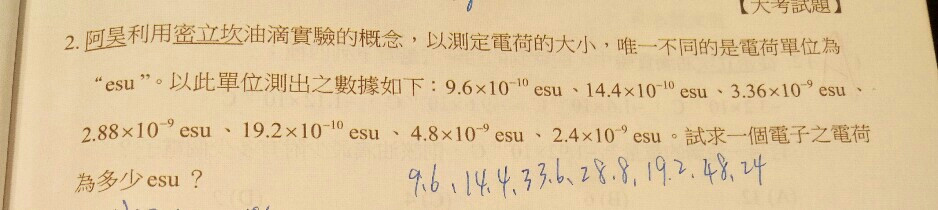 【大考試題】
2. 阿昊利用密立坎油滴實驗的概念，以測定電荷的大小，唯一不同的是電荷單位為
“esu”。以此單位測出之數據如下：9.6×10⁻¹⁰ esu、14.4×10⁻¹⁰ esu、3.36×10⁻⁹ esu、
2.88×10⁻⁹ esu、19.2×10⁻¹⁰ esu、4.8×10⁻⁹ esu、2.4×10⁻⁹ esu。試求一個電子之電荷
為多少 esu？
9.6、14.4、33.6、28.8、19.2、48、24